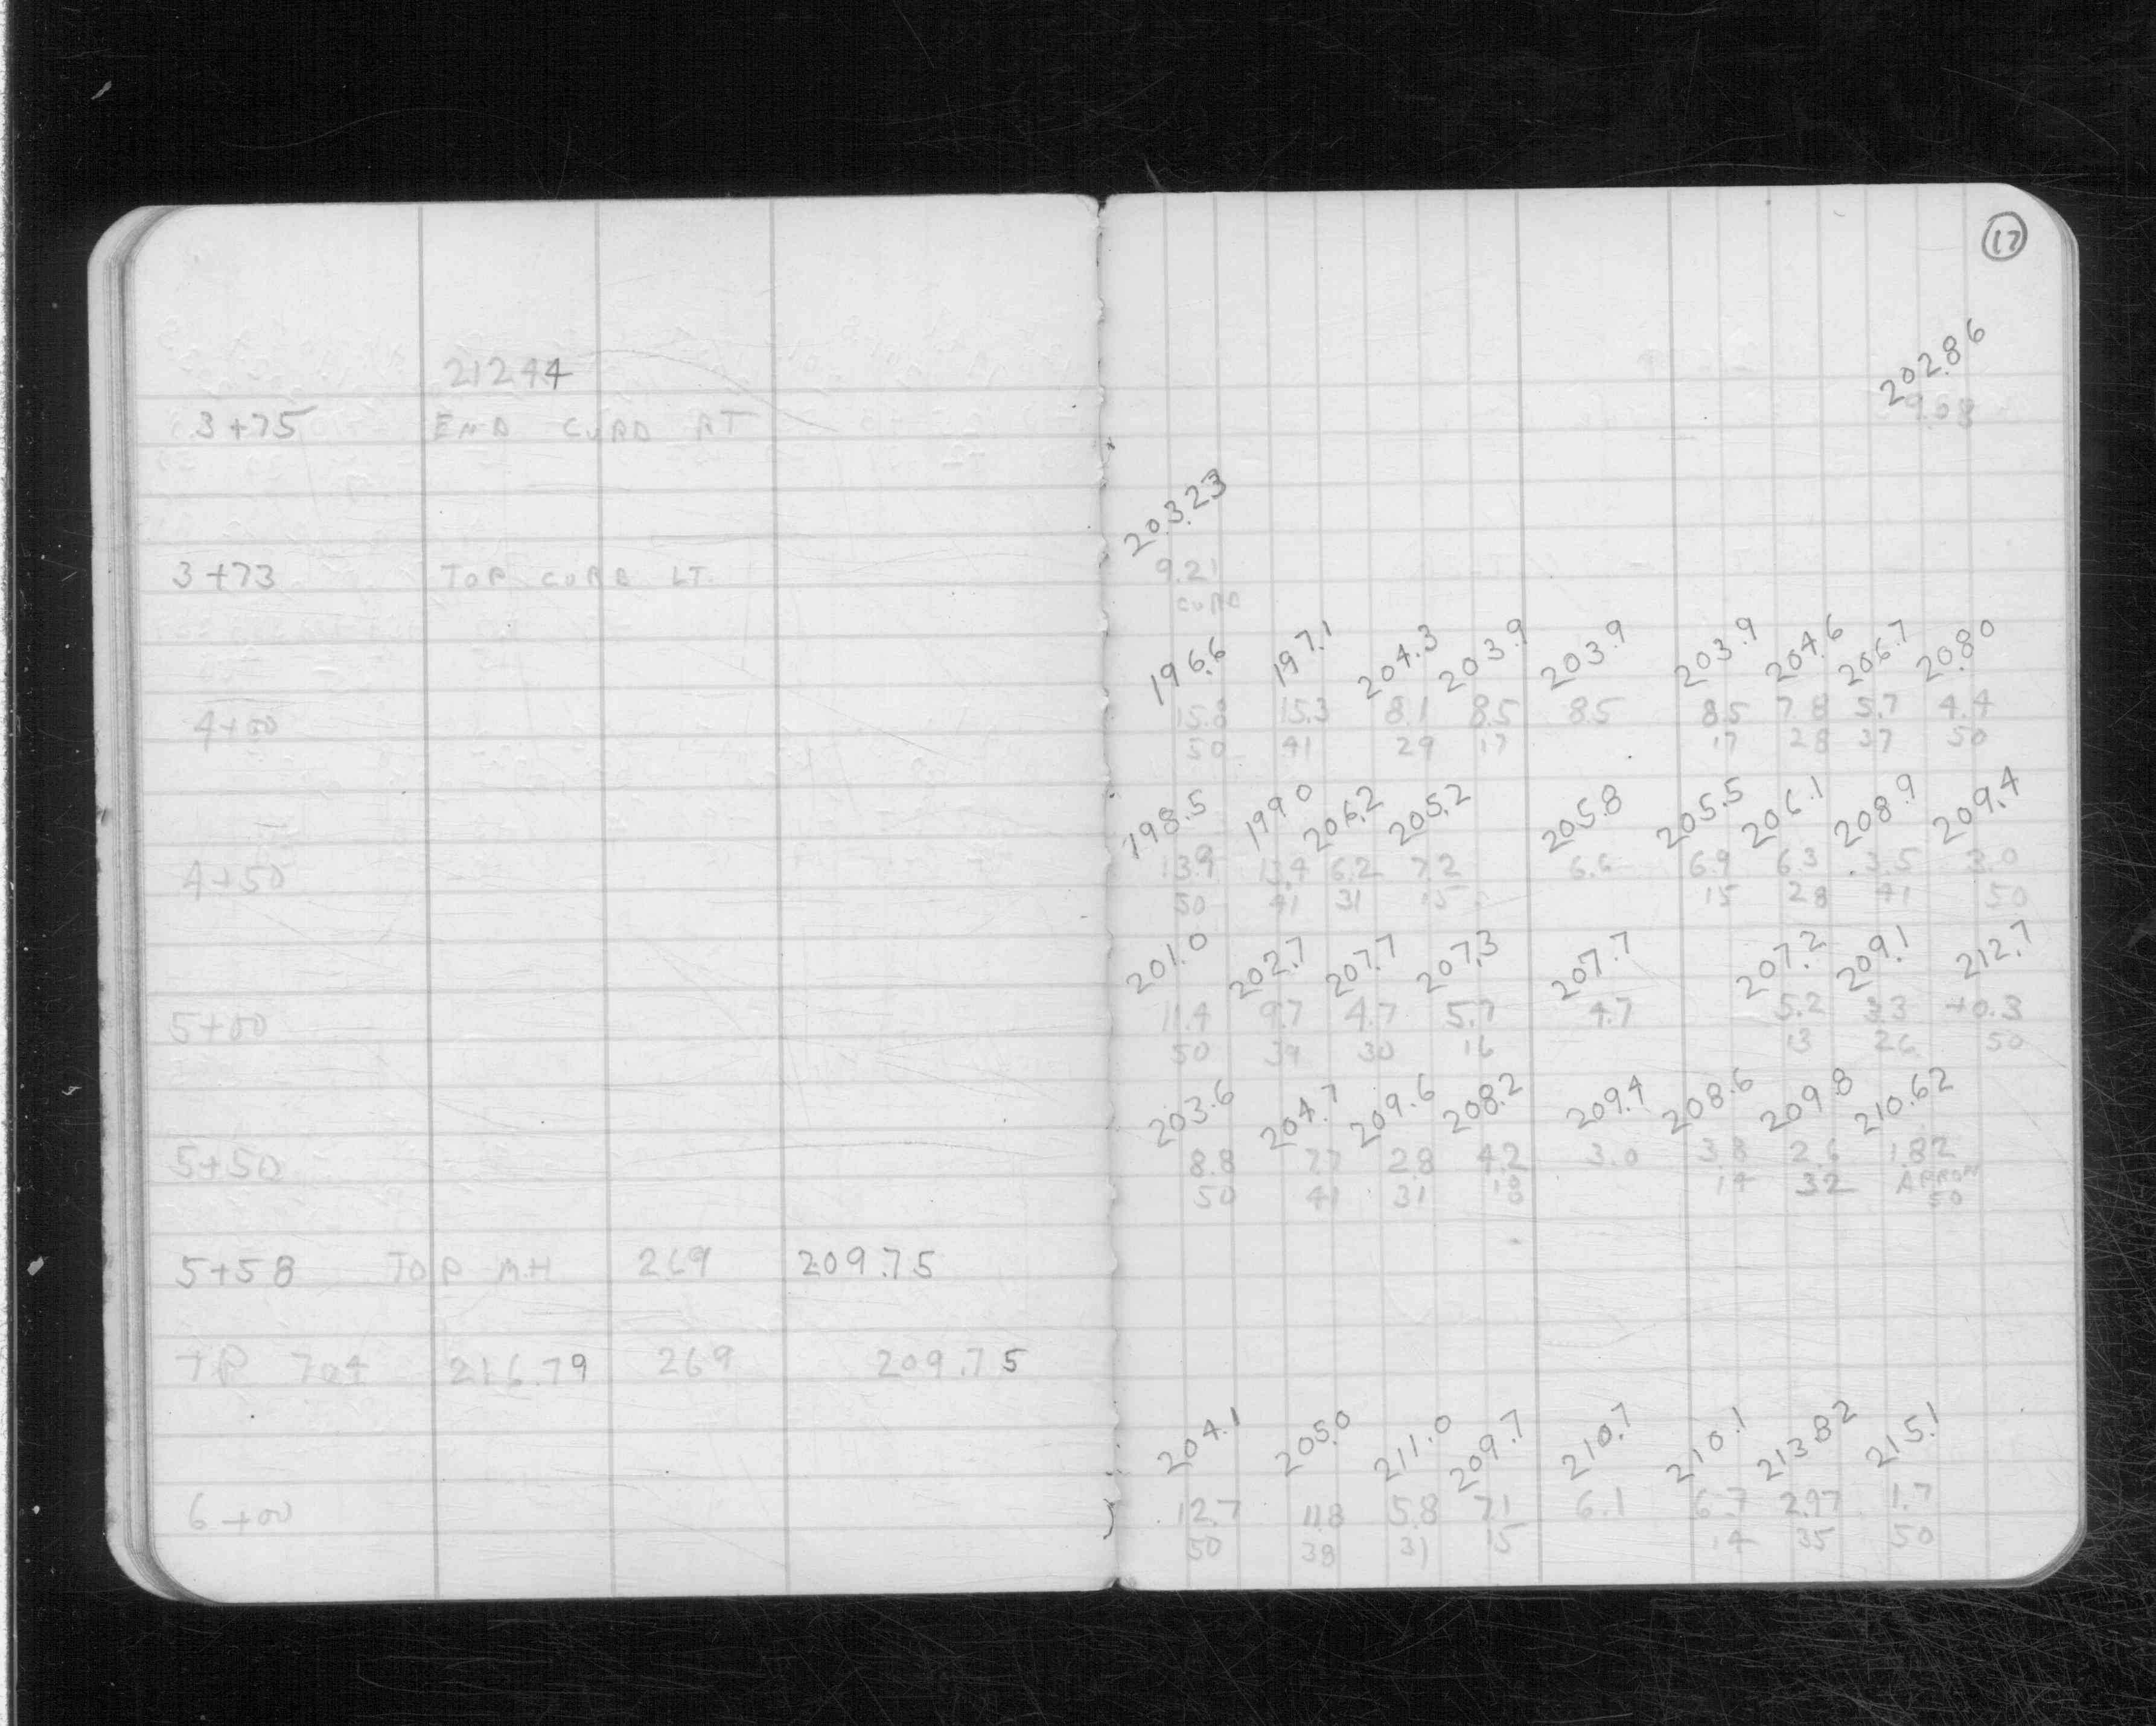 17
212.44
202.86
3+75 END CURB RT 9.58
203.23
3+73 TOP CURB LT. 9.21
CURB
196.6 197.1 204.3 203.9 203.9 203.9 204.6 206.7 208.0
4+00 15.8 15.3 8.1 8.5 8.5 8.5 7.8 5.7 4.4
50 41 29 17 17 28 37 50
198.5 199.0 206.2 205.2 205.8 205.5 206.1 208.9 209.4
4+50 13.9 13.4 6.2 7.2 6.6 6.9 6.3 3.5 3.0
50 41 31 15 15 28 41 50
201.0 202.7 207.7 207.3 207.7 207.2 209.1 212.7
5+00 11.4 9.7 4.7 5.7 4.7 5.2 3.3 +0.3
50 39 30 16 13 26 50
203.6 204.7 209.6 208.2 209.4 208.6 209.8 210.62
5+50 8.8 7.7 2.8 4.2 3.0 3.8 2.6 1.82
50 41 31 18 14 32 APRON
50
5+58 TOP MH 269 209.75
TP 704 216.79 269 209.75
204.1 205.0 211.0 209.7 210.7 210.1 213.82 215.1
6+00 12.7 11.8 5.8 7.1 6.1 6.7 2.97 1.7
50 38 31 15 14 35 50